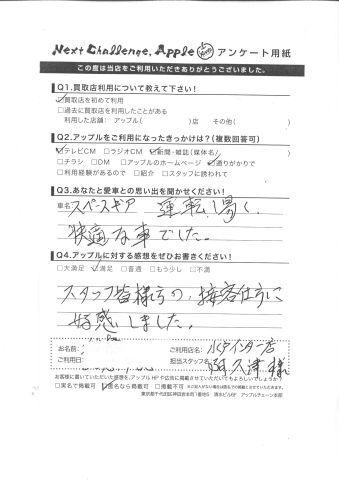 Next Challenge. Apple アンケート用紙
この度は当店をご利用いただきありがとうございました。
Q1.買取店利用について教えて下さい!
☑買取店を初めて利用
□過去に買取店を利用したことがある
利用した店舗: アップル( )店 その他( )
Q2.アップルをご利用になったきっかけは?(複数回答可)
☑テレビCM □ラジオCM ☑新聞・雑誌(媒体名/ )
□チラシ □DM □アップルのホームページ ☑通りがかりで
□利用経験があるので □紹介 □スタッフに誘われて
Q3.あなたと愛車との思い出を聞かせください!
車名 スペースギア 運転し易く、
快適な車でした。
Q4.アップルに対する感想をぜひお書きください!
□大満足 ☑満足 □普通 □もう少し □不満
スタッフ皆様方の、接客仕方に
好感しました。
お名前: ご利用店名: 水戸インター店
ご利用日: 担当スタッフ名: 阿久津 様
お客様に書いていただいた感想を、アップルHPや広告に掲載させていただいてもよろしいでしょうか?
□実名で掲載可 ☑匿名なら掲載可 □掲載不可
東京都千代田区神田岩本町1番地5 清水ビル6F アップルチェーン本部